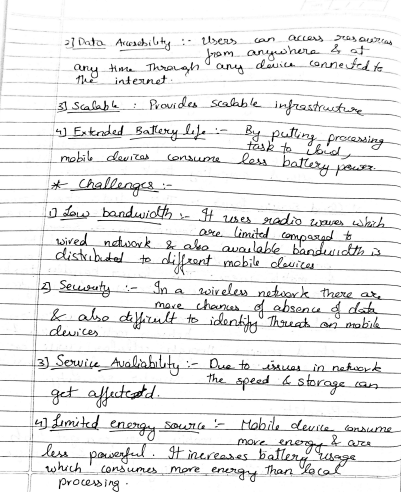 2] Data Accesibility :- Users can access resources
from anywhere & at
any time Through any device connected to
the internet.
3] Scalable : Provides scalable infrastructure
4] Extended Battery life :- By putting processing
task to cloud,
mobile devices consume less battery power.
* Challenges :-
1] Low bandwidth :- It uses radio waves which
are limited compared to
wired network & also available bandwidth is
distributed to diffrent mobile devices
2] Security :- In a wireless network there are
more chances of absence of data
& also difficult to identify Threats on mobile
devices
3] Service Avaliability :- Due to issues in network
the speed & storage can
get affected.
4] Limited energy source :- Mobile device consume
more energy & are
less powerful. It increases battery usage
which consumes more energy Than local
processing.